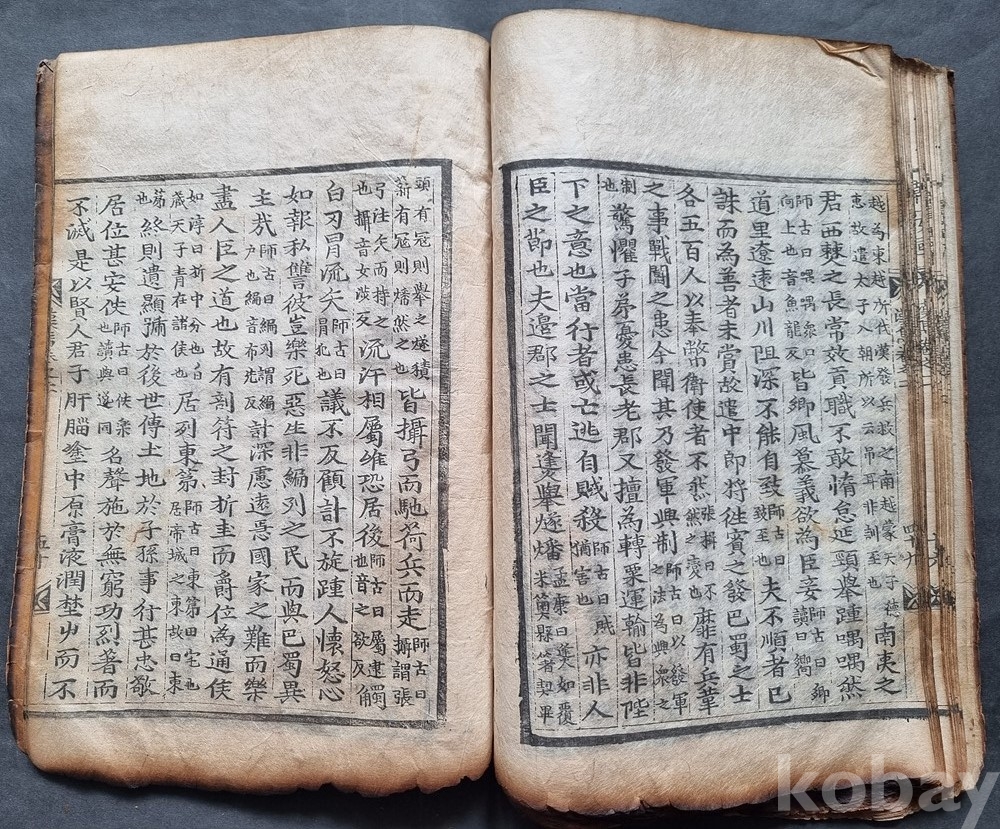 越為東越所代漢發兵救之南越蒙天子徳惠故遣太子入朝所以云吊耳非訓至也南夷之
君西僰之長常效貢職不敢惰怠延頸舉踵喁喁然
師古曰喁喁衆口向上也音魚龍反皆鄉風慕義欲為臣妾師古曰鄉讀曰嚮
道里遼遠山川阻深不能自致師古曰致至也夫不順者已
誅而為善者未賞故遣中郎將徃賓之發巴蜀之士
各五百人以奉幣衛使者不然張揖曰不然之變也靡有兵革
之事戰鬪之患今聞其乃發軍興制師古曰以發軍之法為興衆之
制也驚懼子弟憂患長老郡又擅為轉粟運輸皆非陛
下之意也當行者或亡逃自賊殺師古曰賊猶害也亦非人
臣之節也夫邊郡之士聞㷭舉燧燔孟康曰㷭如覆米䉛縣著契皋
頭有冠則舉之燧積薪有冠則燔然之也皆攝弓而馳荷兵而走師古曰攝謂張
弓注矢而持之也攝音女渉反流汗相屬維恐居後師古曰屬逮也音之欲反觸
白刃冒流矢師古曰冒犯也議不反顧計不旋踵人懷怒心
如報私讐彼豈樂死惡生非編列之民而與巴蜀異
主哉師古曰編列謂編户也編音布先反計深慮遠急國家之難而樂
盡人臣之道也故有剖符之封析圭而爵位為通侯
如淳曰析中分也白藏天子青在諸侯也居列東第師古曰東第田宅也居帝城之東故曰東
第也終則遺顯號於後世傳土地於子孫事行甚忠敬
居位甚安佚師古曰佚讀與逸同也名聲施於無窮功烈著而
不滅是以賢人君子肝腦塗中原膏液潤埜屮而不
kobay